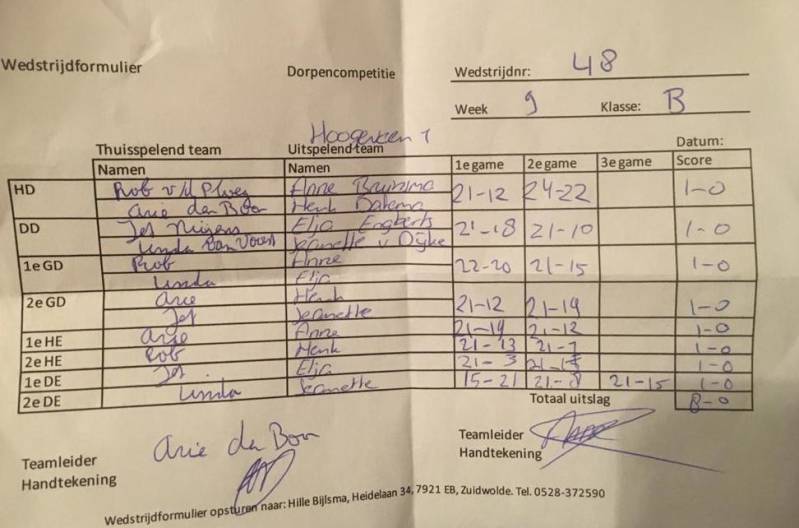 Wedstrijdformulier Dorpencompetitie Wedstrijdnr: 48
Week 9 Klasse: B
Hoogeveen 1
Thuisspelend team Uitspelend team Datum:
Namen Namen 1e game 2e game 3e game Score
HD Rob v/d Anne Bruinsma 21-12 24-22 1-0
Arie den Boon Henk
DD Jet Elja Engberts 21-18 21-10 1-0
Linda van Voorst Jeanette v Dijke
1e GD Rob Anne 22-20 21-15 1-0
Linda Elja
2e GD Arie Henk 21-12 21-19 1-0
Jet Jeanette
1e HE Arie Anne 21-19 21-12 1-0
2e HE Rob Henk 21-13 21-7 1-0
1e DE Jet Elja 21-3 1-0
2e DE Linda Jeanette 15-21 21-8 21-15 1-0
Totaal uitslag 8-0
Teamleider Arie den Boon Teamleider
Handtekening Handtekening
Wedstrijdformulier opsturen naar: Hille Bijlsma, Heidelaan 34, 7921 EB, Zuidwolde. Tel. 0528-372590